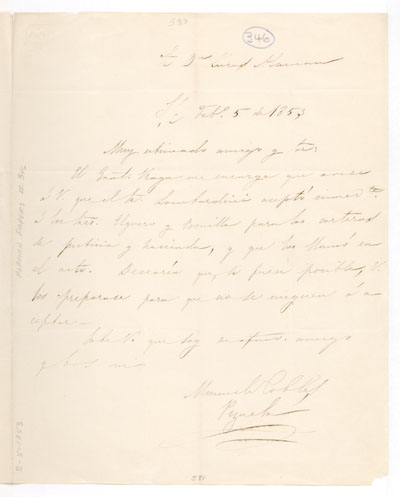 337
346
Sr Dn Lucas Alaman
Feb.o 5 de 1853
Muy estimado amigo y Sr:
El Gral. Uraga me encarga que avise
á V. que el Sr. Lombardini aceptó
á los Sres. y Bonilla para las carteras
de justicia y hacienda, y que los llamó en
el acto. Desearia que, si fuese posible, V.
los preparase para que no se nieguen á a-
ceptar.—
Sabe V. que soy su afmo. amigo
y
Manuel Robles
Pezuela
ALAMAN PAPERS
2-5-1853